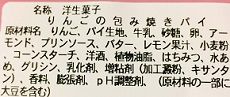 名称 洋生菓子
りんごの包み焼きパイ
原材料名 りんご、パイ生地、牛乳、砂糖、卵、アー
モンド、プリンソース、バター、レモン果汁、小麦粉
、コーンスターチ、洋酒、植物油脂、はちみつ、水あ
め、グリシン、乳化剤、増粘剤（加工澱粉、キサンタ
ン）、香料、膨張剤、pH調整剤、（原材料の一部に
大豆を含む）